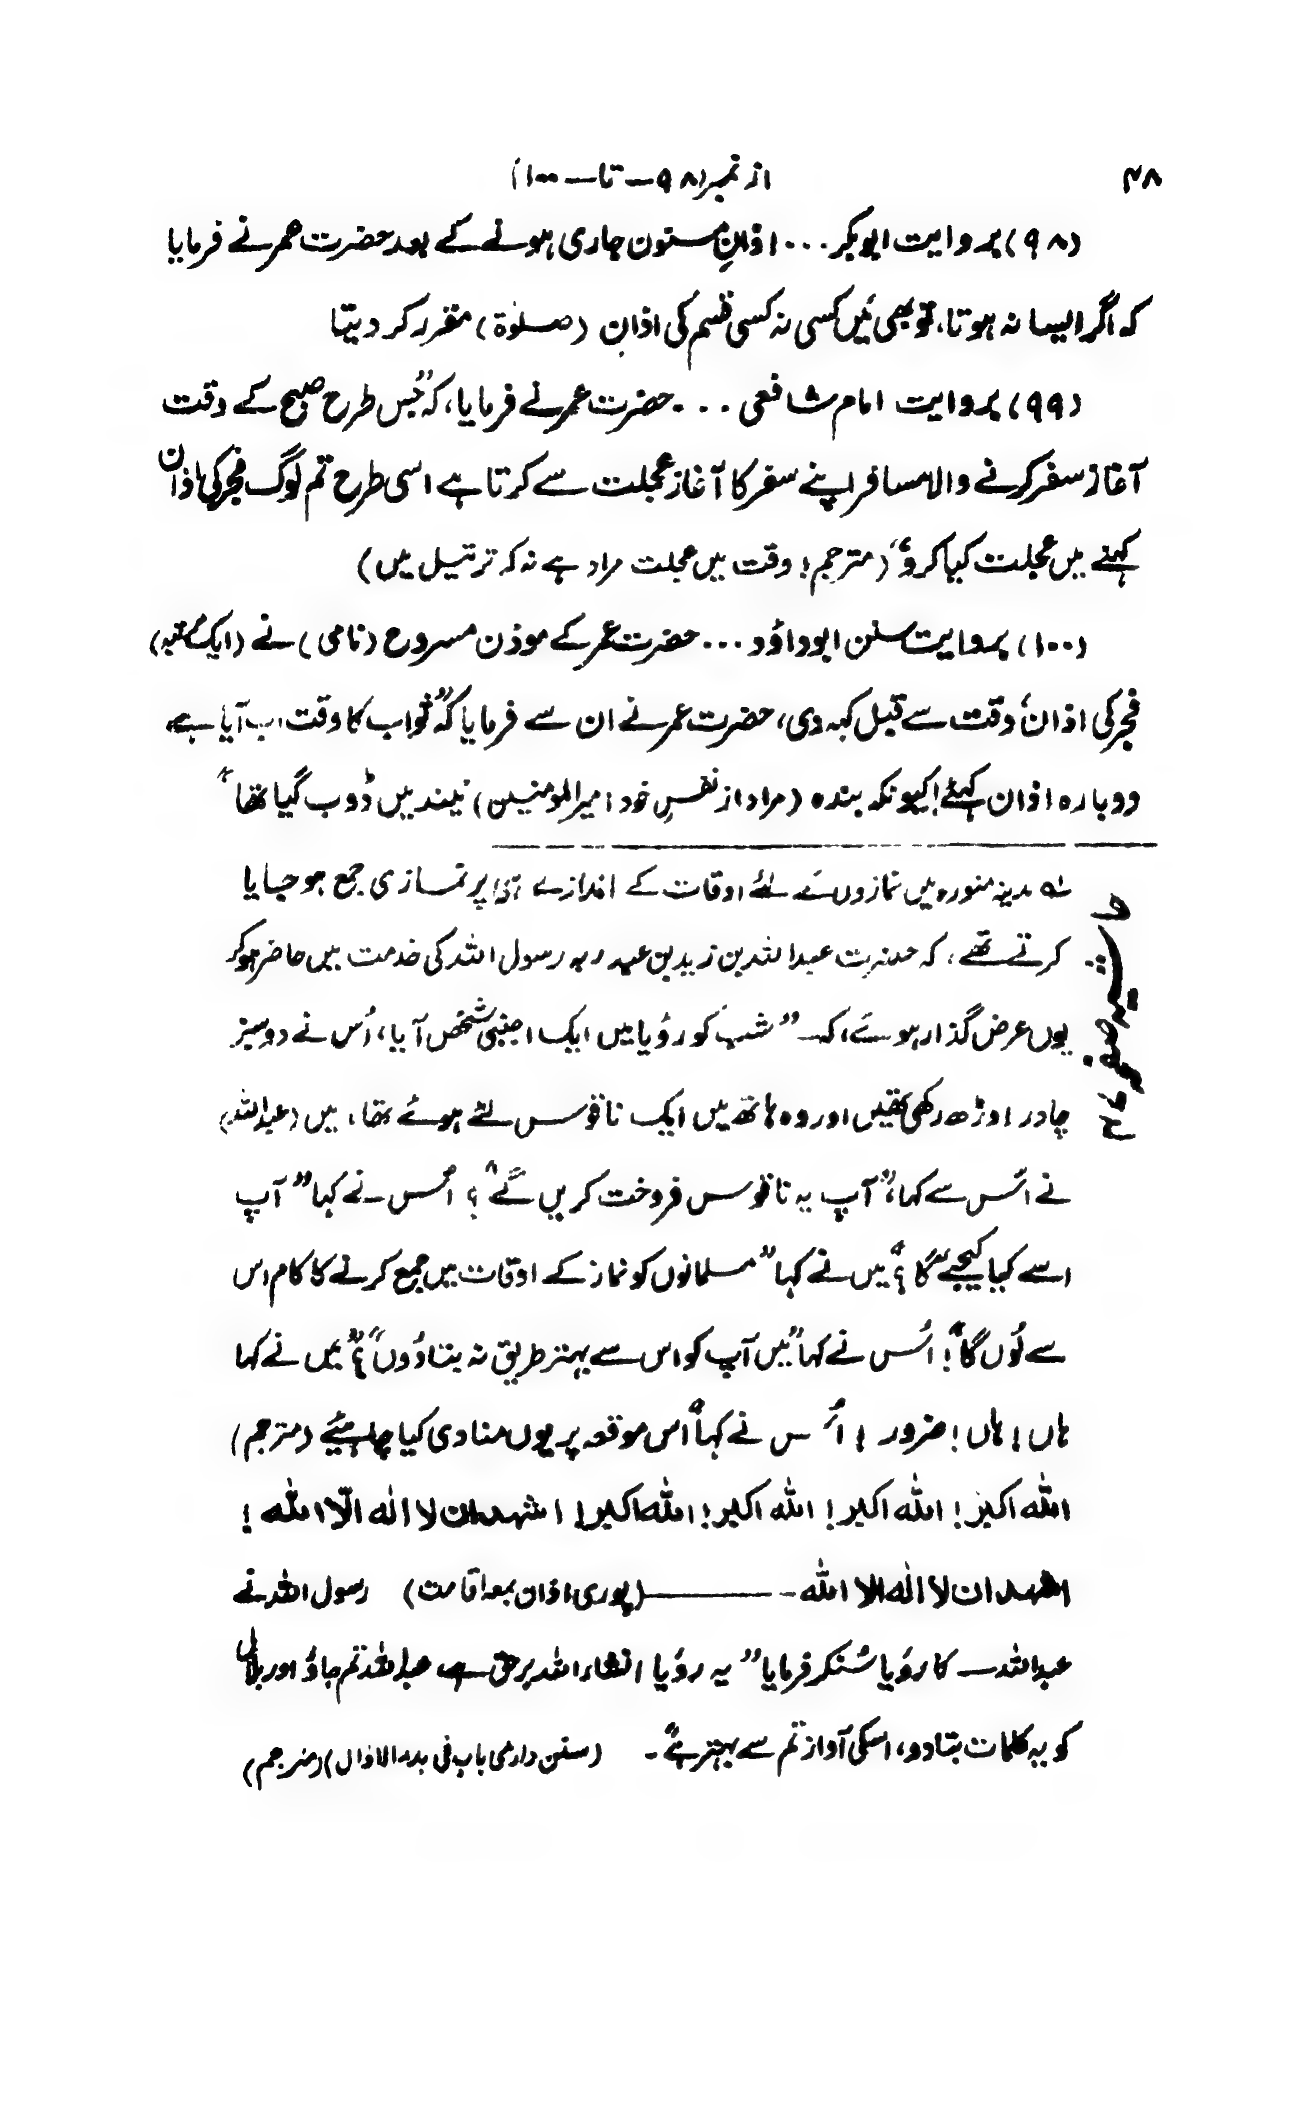 ۴۸
از نمبر (۹۸ — تا — ۱۰۰)
(۹۸) بروایت ابوبکر ... اذانِ مسنون جاری ہونے کے بعد حضرت عمر نے فرمایا
کہ اگر ایسا نہ ہوتا، تو بھی مَیں کسی نہ کسی قسم کی اذان (صلوٰۃ) مقرر کر دیتا
(۹۹) بروایت امام شافعی ... حضرت عمر نے فرمایا، کہ ”جس طرح صبح کے وقت
آغاز سفر کرنے والا مسافر اپنے سفر کا آغاز عجلت سے کرتا ہے اسی طرح تم لوگ فجر کی اذان
کہنے میں عجلت کیا کرو“ (مترجم! وقت میں عجلت مراد ہے نہ کہ ترتیل میں)
(۱۰۰) بروایت سنن ابوداؤد ... حضرت عمر کے موذن مسروح (نامی) نے (ایک مرتبہ)
فجر کی اذان وقت سے قبل کہہ دی، حضرت عمر نے ان سے فرمایا کہ ”ثواب کا وقت اب آیا ہے
دوبارہ اذان کہئے! کیونکہ بندہ (مراد از نفسِ خود امیرالمومنین) نیند میں ڈوب گیا تھا“
حاشیہ صفحہ ۴۷
لہ مدینہ منورہ میں نمازوں کے لئے اوقات کے اندازے ہی پر نمازی جمع ہو جایا
کرتے تھے، کہ حضرت عبداللہ بن زید بن عبد ربہ رسول اللہ کی خدمت میں حاضر ہو کر
یوں عرض گذار ہوئے، کہ — ”شب کو رؤیا میں ایک اجنبی شخص آیا، اُس نے دو سبز
چادر اوڑھ رکھی تھیں اور وہ ہاتھ میں ایک ناقوس لئے ہوئے تھا، میں (عبداللہ)
نے اُس سے کہا، ”آپ یہ ناقوس فروخت کریں گے“؟ اُس نے کہا ”آپ
اسے کیا کیجئے گا“؟ میں نے کہا ”مسلمانوں کو نماز کے اوقات میں جمع کرنے کا کام اس
سے لوں گا“! اُس نے کہا ”میں آپ کو اس سے بہتر طریق نہ بتا دُوں“؟ میں نے کہا
ہاں! ہاں! ضرور! اُس نے کہا ”اس موقعہ پر یوں منادی کیا چاہیئے (مترجم)
اللہ اکبر! اللہ اکبر! اللہ اکبر! اللہ اکبر! اشہد ان لا الٰہ الّا اللہ!
اشہد ان لا الٰہ الا اللہ — (پوری اذان بمعہ اقامت) رسول اللہ نے
عبداللہ — کا رؤیا سُنکر فرمایا ”یہ رؤیا انشاء اللہ برحق ہے عبداللہ تم جاؤ اور بلال
کو یہ کلمات بتا دو، اسکی آواز تم سے بہتر ہے“۔ (سنن دارمی باب فی بدء الاذان) (مترجم)